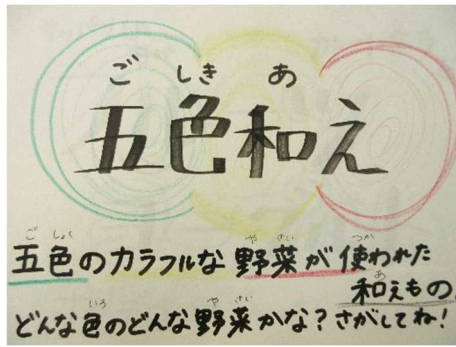 ごしきあ
五色和え
ごしょく や さい つか
五色のカラフルな野菜が使われた
あ
和えもの。
いろ や さい
どんな色のどんな野菜かな？さがしてね！